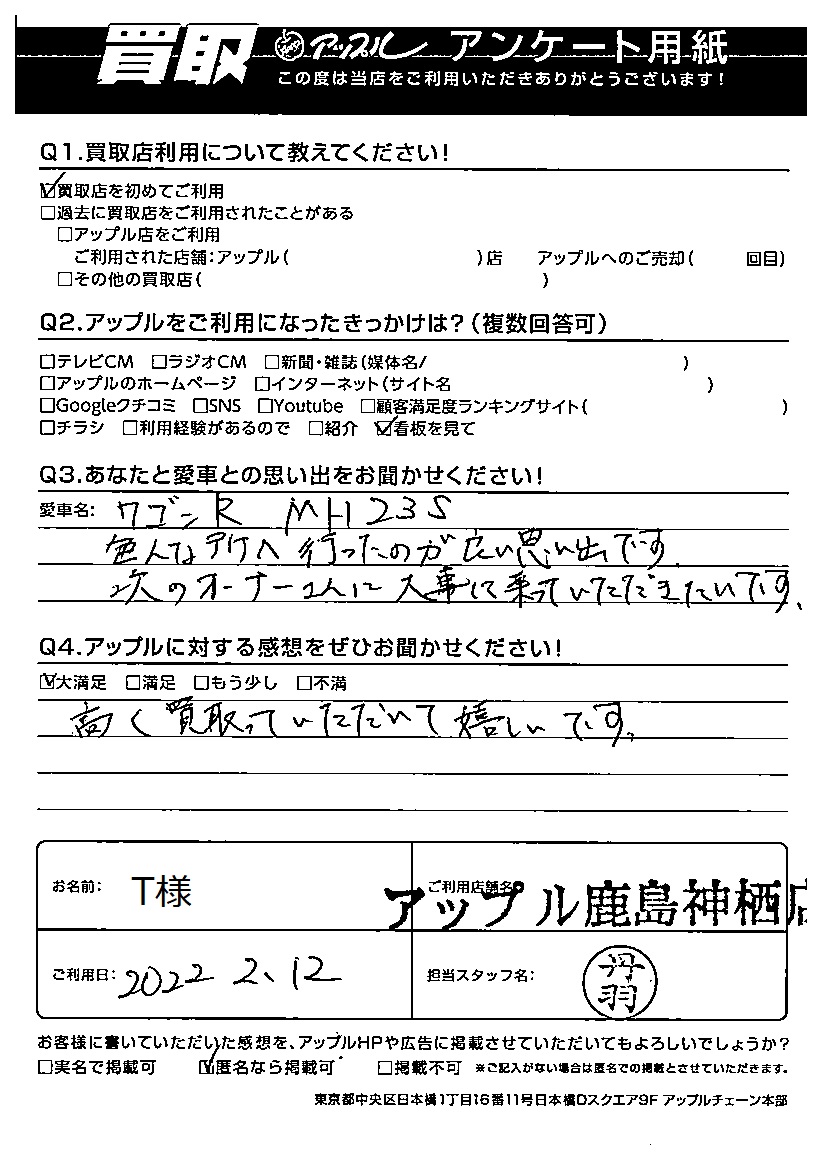 買取 アップル アンケート用紙
この度は当店をご利用いただきありがとうございます!
Q1.買取店利用について教えてください!
☑買取店を初めてご利用
□過去に買取店をご利用されたことがある
□アップル店をご利用
ご利用された店舗:アップル( )店 アップルへのご売却( 回目)
□その他の買取店( )
Q2.アップルをご利用になったきっかけは?(複数回答可)
□テレビCM □ラジオCM □新聞・雑誌(媒体名/ )
□アップルのホームページ □インターネット(サイト名 )
□Googleクチコミ □SNS □Youtube □顧客満足度ランキングサイト( )
□チラシ □利用経験があるので □紹介 ☑看板を見て
Q3.あなたと愛車との思い出をお聞かせください!
愛車名: ワゴンR MH23S
色んな所へ行ったのが良い思い出です。
次のオーナーさんに大事に乗っていただきたいです。
Q4.アップルに対する感想をぜひお聞かせください!
☑大満足 □満足 □もう少し □不満
高く買取っていただいて嬉しいです。
お名前: T様 ご利用店舗名:
アップル鹿島神栖店
ご利用日: 2022 2、12 担当スタッフ名: 丹羽
お客様に書いていただいた感想を、アップルHPや広告に掲載させていただいてもよろしいでしょうか?
□実名で掲載可 ☑匿名なら掲載可 □掲載不可 ※ご記入がない場合は匿名での掲載とさせていただきます。
東京都中央区日本橋1丁目16番11号日本橋Dスクエア9F アップルチェーン本部